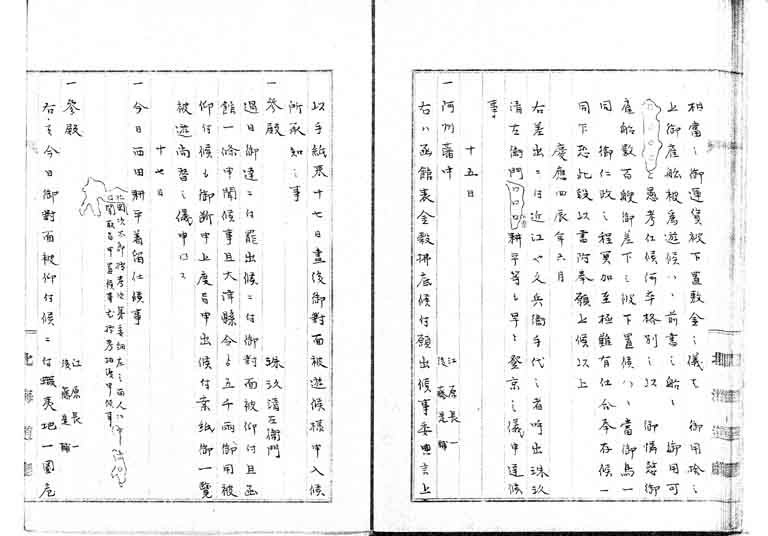 相當之御運賃被下置敷金之儀も御用捨之
上御雇船被為遊候ハヽ前書之船ヽ御用可
と愚考仕候何卒格別之以御憐愍御
雇船数百艘御差下之被下置候ハヽ當御島一
同御仁政之程冥加至極難有仕合奉存候一
同下恐此段以書附奉願上候以上
慶應四辰年六月
右差出ニ付近江や文兵衛手代之者呼出珠玖
清左衛門口口口耕平等も早々登京之儀申達候
事
十五日
一阿州藩中
江原長一
後藤是輔
右ハ函館表金穀拂底候付願出候事委典言上
以手紙来十七日昼後御對面被遊候様申入候
所承知之事
一參殿 珠玖清左衛門
過日御達ニ付罷出候ニ付御對面被仰付且函
館一條申聞候事且大津縣今ゟ五千兩御用被
仰付候も御断申上度旨申出候付案紙御一覧
被遊尚替之儀申口口
十七日
一今日西田耕平着届仕候事
一參殿
江原長一
後藤是輔
右ハ今日御對面被仰付候ニ付蝦夷地一圓危